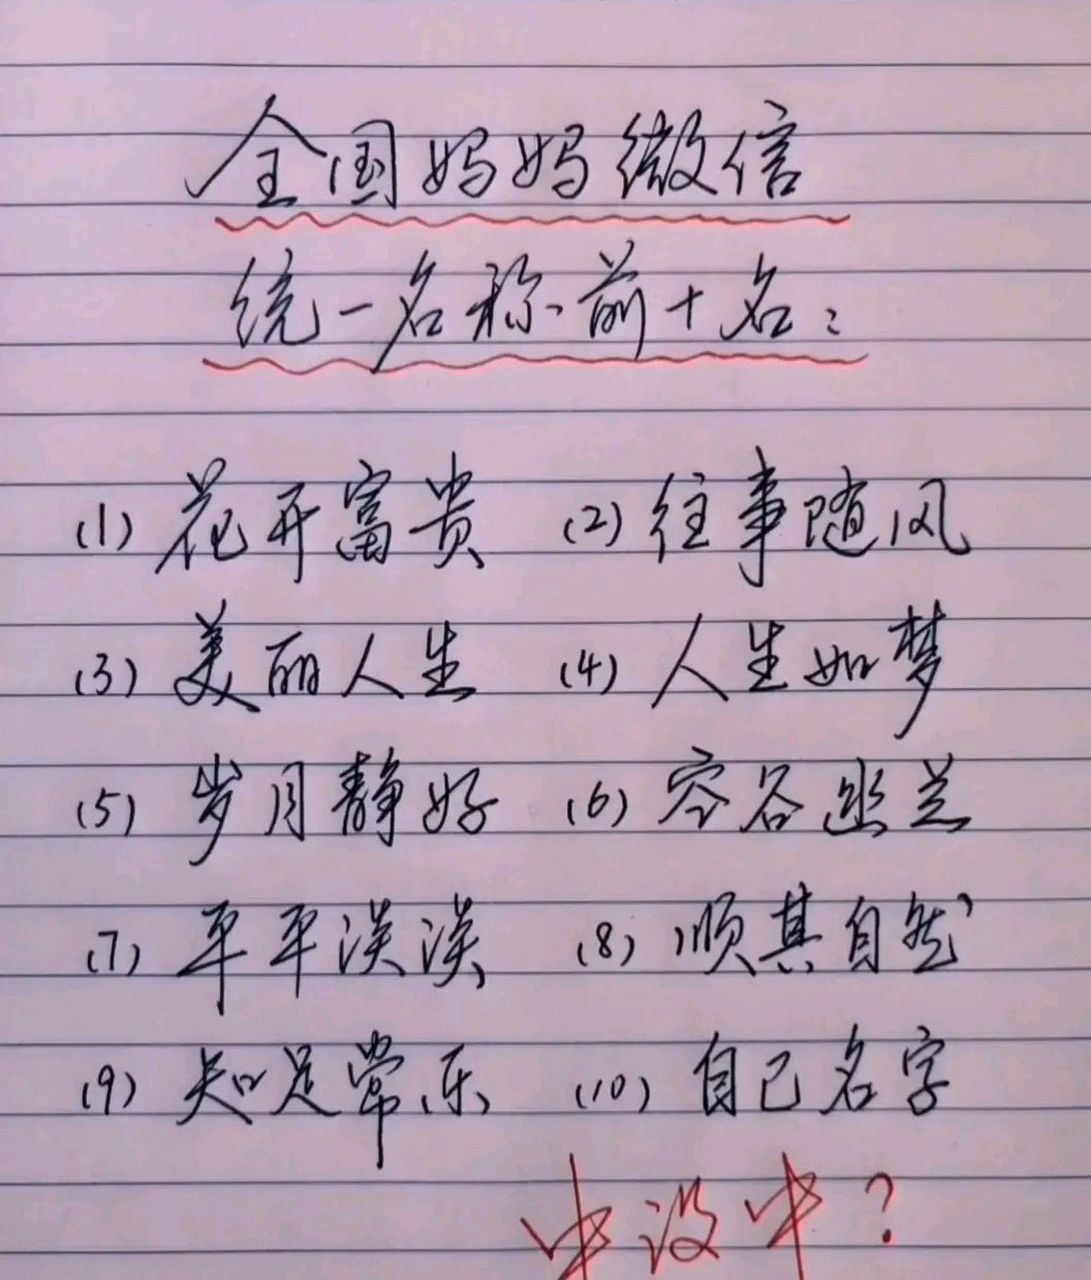 全国妈妈微信
统一名称前十名:
(1) 花开富贵 (2) 往事随风
(3) 美丽人生 (4) 人生如梦
(5) 岁月静好 (6) 空谷幽兰
(7) 平平淡淡 (8) 顺其自然
(9) 知足常乐 (10) 自己名字
中没中?